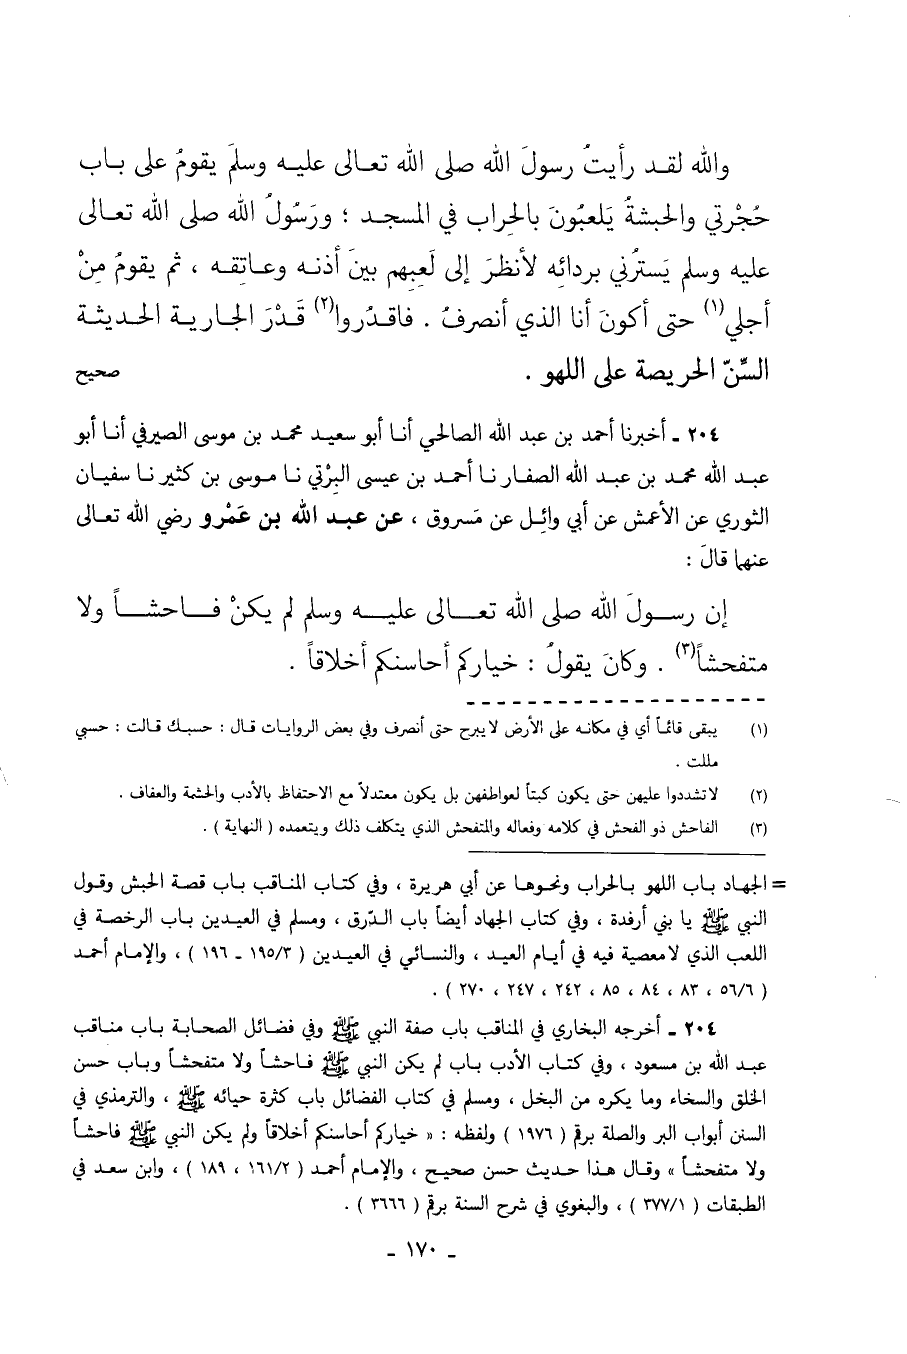 والله لقـد رأيتُ رسولَ الله صلى الله تعـالى عليـه وسلمَ يقومُ على بـاب
حُجْرتي والحبشةُ يَلعبُونَ بالحِراب في المسجـد ؛ ورَسُولُ الله صلى الله تعـالى
عليه وسلم يَسترُني بردائِه لأنظرَ إلى لَعِبهم بينَ أذنـه وعـاتِقـه ، ثم يقومُ مِنْ
أجلي(١) حتى أكونَ أنا الذي أنصرفُ . فاقـدُروا(٢) قَـدْرَ الجـاريـة الحـديثـة
السِّنّ الحريصة على اللهو . صحيح
٢٠٤ ـ أخبرنا أحمد بن عبد الله الصالحي أنـا أبو سعيـد محمـد بن موسى الصيرفي أنـا أبو
عبـد الله محمـد بن عبـد الله الصفـار نـا أحمـد بن عيسى البِرْتي نـا مـوسى بن كثير نـا سفيـان
الثوري عن الأعمش عن أبي وائـل عن مَسروق ، عن عبـد الله بن عَمْرو رضي الله تعـالى
عنهما قالَ :
إن رسـولَ الله صلى الله تعـالى عليـه وسلم لم يكنْ فـاحشـاً ولا
متفحشاً(٣) . وكانَ يقولُ : خياركم أحاسنكم أخلاقاً .
(١) يبقى قائمـاً أي في مكانـه على الأرض لا يبرح حتى أنصرف وفي بعض الروايـات قـال : حسبـك قـالت : حسبي
مللت .
(٢) لا تشددوا عليهن حتى يكون كبتاً لعواطفهن بل يكون معتدلاً مع الاحتفاظ بالأدب والحشمة والعفاف .
(٣) الفاحش ذو الفحش في كلامه وفعاله والمتفحش الذي يتكلف ذلك ويتعمده ( النهاية ) .
= الجهـاد بـاب اللهو بـالحراب ونحـوهـا عن أبي هريرة ، وفي كتـاب المنـاقب بـاب قصـة الحبش وقـول
النبي ﷺ يا بني أرفدة ، وفي كتاب الجهاد أيضـاً باب الـدّرق ، ومسلم في العيـدين بـاب الرخصة في
اللعب الذي لا معصية فيه في أيـام العيـد ، والنسـائي في العيـدين ( ٣/١٩٥ ـ ١٩٦ ) ، والإمـام أحمـد
( ٦/٥٦ ، ٨٣ ، ٨٤ ، ٨٥ ، ٢٤٢ ، ٢٤٧ ، ٢٧٠ ) .
٢٠٤ ـ أخرجه البخاري في المناقب باب صفة النبي ﷺ وفي فضائل الصحـابـة بـاب منـاقب
عبـد الله بن مسعود ، وفي كتـاب الأدب بـاب لم يكن النبي ﷺ فـاحشـاً ولا متفحشـاً وبـاب حسن
الخلق والسخاء وما يكره من البخل ، ومسلم في كتاب الفضائل باب كثرة حيائه ﷺ ، والترمذي في
السنن أبواب البر والصلة برقم ( ١٩٧٦ ) ولفظه : « خياركم أحاسنكم أخلاقاً ولم يكن النبي ﷺ فاحشـاً
ولا متفحشـاً » وقـال هـذا حـديث حسن صحيـح ، والإمـام أحمـد ( ٢/١٦١ ، ١٨٩ ) ، وابن سعـد في
الطبقات ( ١/٣٧٧ ) ، والبغوي في شرح السنة برقم ( ٣٦٦٦ ) .
ـ ١٧٠ ـ